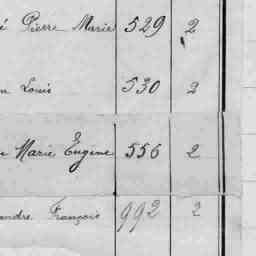 é Pierre Marie 529 2
n Louis 530 2
e Marie Eugene 556 2
andre François 992 2